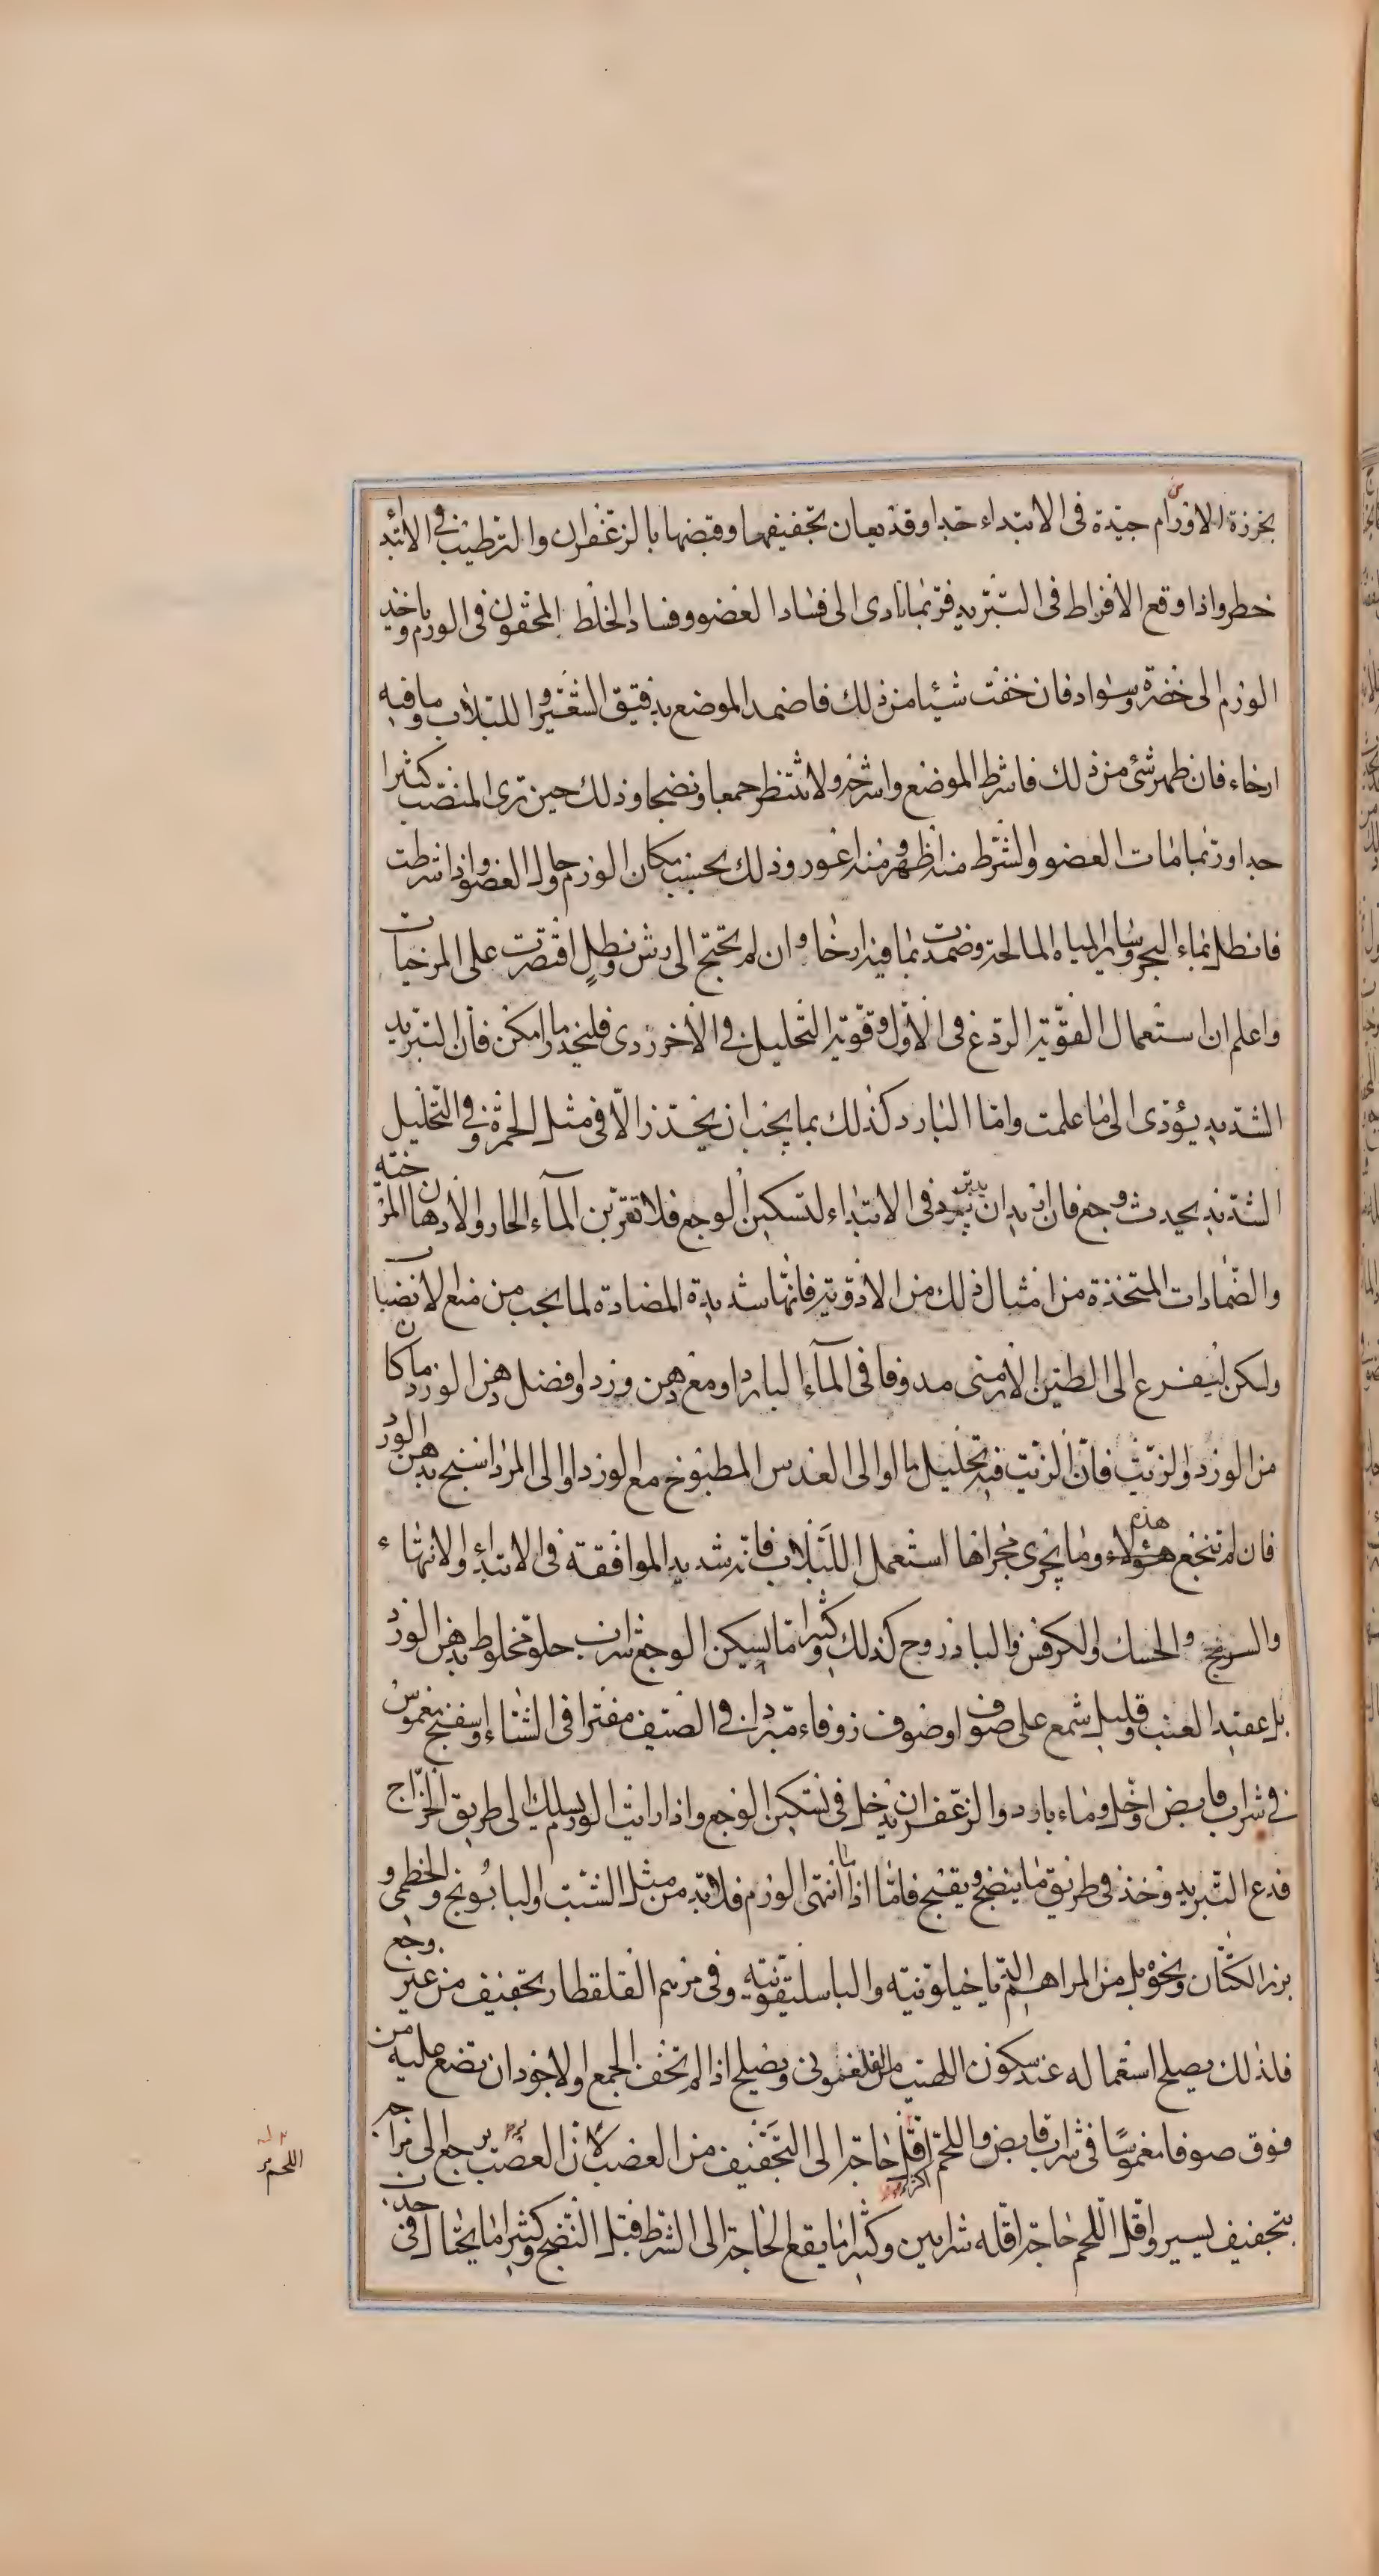 بخرزة الاورام جيدة فى الابتداء جدا وقد يعان تجفيفهما وقبضها بالزعفران والترطيب فى الابتدا
خطر واذا وقع الافراط فى التبريد فربما تادى الى فساد العضو وفساد الخلط المحقون فى الورم وياخذ
الورم الى خضرة وسواد فان خفت شيئا من ذلك فاضمد الموضع بدقيق الشعير واللبلاب وما فيه
ارخاء فان ظهر شئ من ذلك فاشرط الموضع واشرخه ولا تنتظر جمعا ونضجا وذلك حين ترى المنصب كثيرا
جدا وربما مات العضو والشرط منه اظهر ومنه اغور وذلك بحسب مكان الورم وحال العضو واذا شرطت
فانطل بماء البحر وسائر المياه المالحة وضمدت بما فيه ارخا وان لم تحتج الى رش ونطل اقتصرت على المرخيات
واعلم ان استعمال القوية الردع فى الاول وقوية التحليل فى الاخر ردى فليحذر ما امكن فان التبريد
الشديد يؤدى الى ما علمت واما البارد كذلك بما يجب ان يحذر الا فى مثل الحمرة وفى التحليل
الشديد يحدث وجع فان اريد ان يبرد فى الابتداء لتسكين الوجع فلا تقربن المآء الحار والادهان المرخيه
والضمادات المتخذة من امثال ذلك من الادوية فانها شديدة المضادة لما يجب من منع الانضباب
ولكن ليفرع الى الطين الارمنى مدوفا فى المآء البارد او مع دهن ورد وافضل دهن الورد ما كان
من الورد والزيت فان الزيت فيه تحليل ما او الى العدس المطبوخ مع الورد او الى المرداسنج بدهن الورد
فان لم تنجع هؤلاء هذه وما يجرى مجراها استعمل اللبلاب فانه شديد الموافقة فى الابتداء والانتهاء
والسرنج والحسك والكرفس والباذروج كذلك وكثيرا ما يسكن الوجع شراب حلو مخلوط بدهن الورد
بل عقيد العنب وقليل شمع على صوف او صوف زوفاء مبردا فى الصيف مفترا فى الشتاء او سفنج مغموس
فى شراب قابض او خل وماء بارد والزعفران يدخل فى تسكين الوجع واذا رايت الورم يسلك الى طريق الخراج
فدع التبريد وخذ فى طريق ما ينضج ويقيح فاما اذا انتهى الورم فلا بد من مثل الشبت والبابونج والخطمى و
بزر الكتان ونحوه بل من المراهم الدياخيلونيه والباسليقونيه وفى مرهم القلقطار تجفيف من غير وجع
فلذلك يصلح استعماله عند سكون اللهيب من الفلغمونى ويصلح اذا لم تخف الجمع والاجود ان تضع عليه من
فوق صوفا مغموسا فى شراب قابض واللحم اقل حاجة الى التجفيف من العصب لان العصب يرجع الى مزاجه
بتجفيف يسير واقل اللحم حاجة اقله شرايين وكثيرا ما يقع الحاجة الى الشرط قبل النضج وكثيرا ما يحتال فى
اللحم